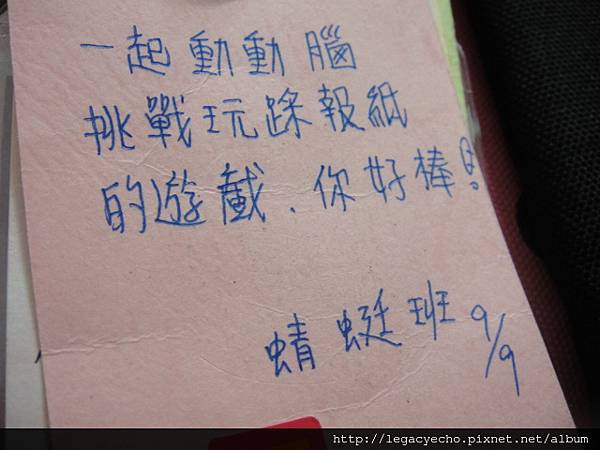 一起動動腦
挑戰玩踩報紙
的遊戲、你好棒!
蜻蜓班 9/9
http://legacyecho.pixnet.net/album